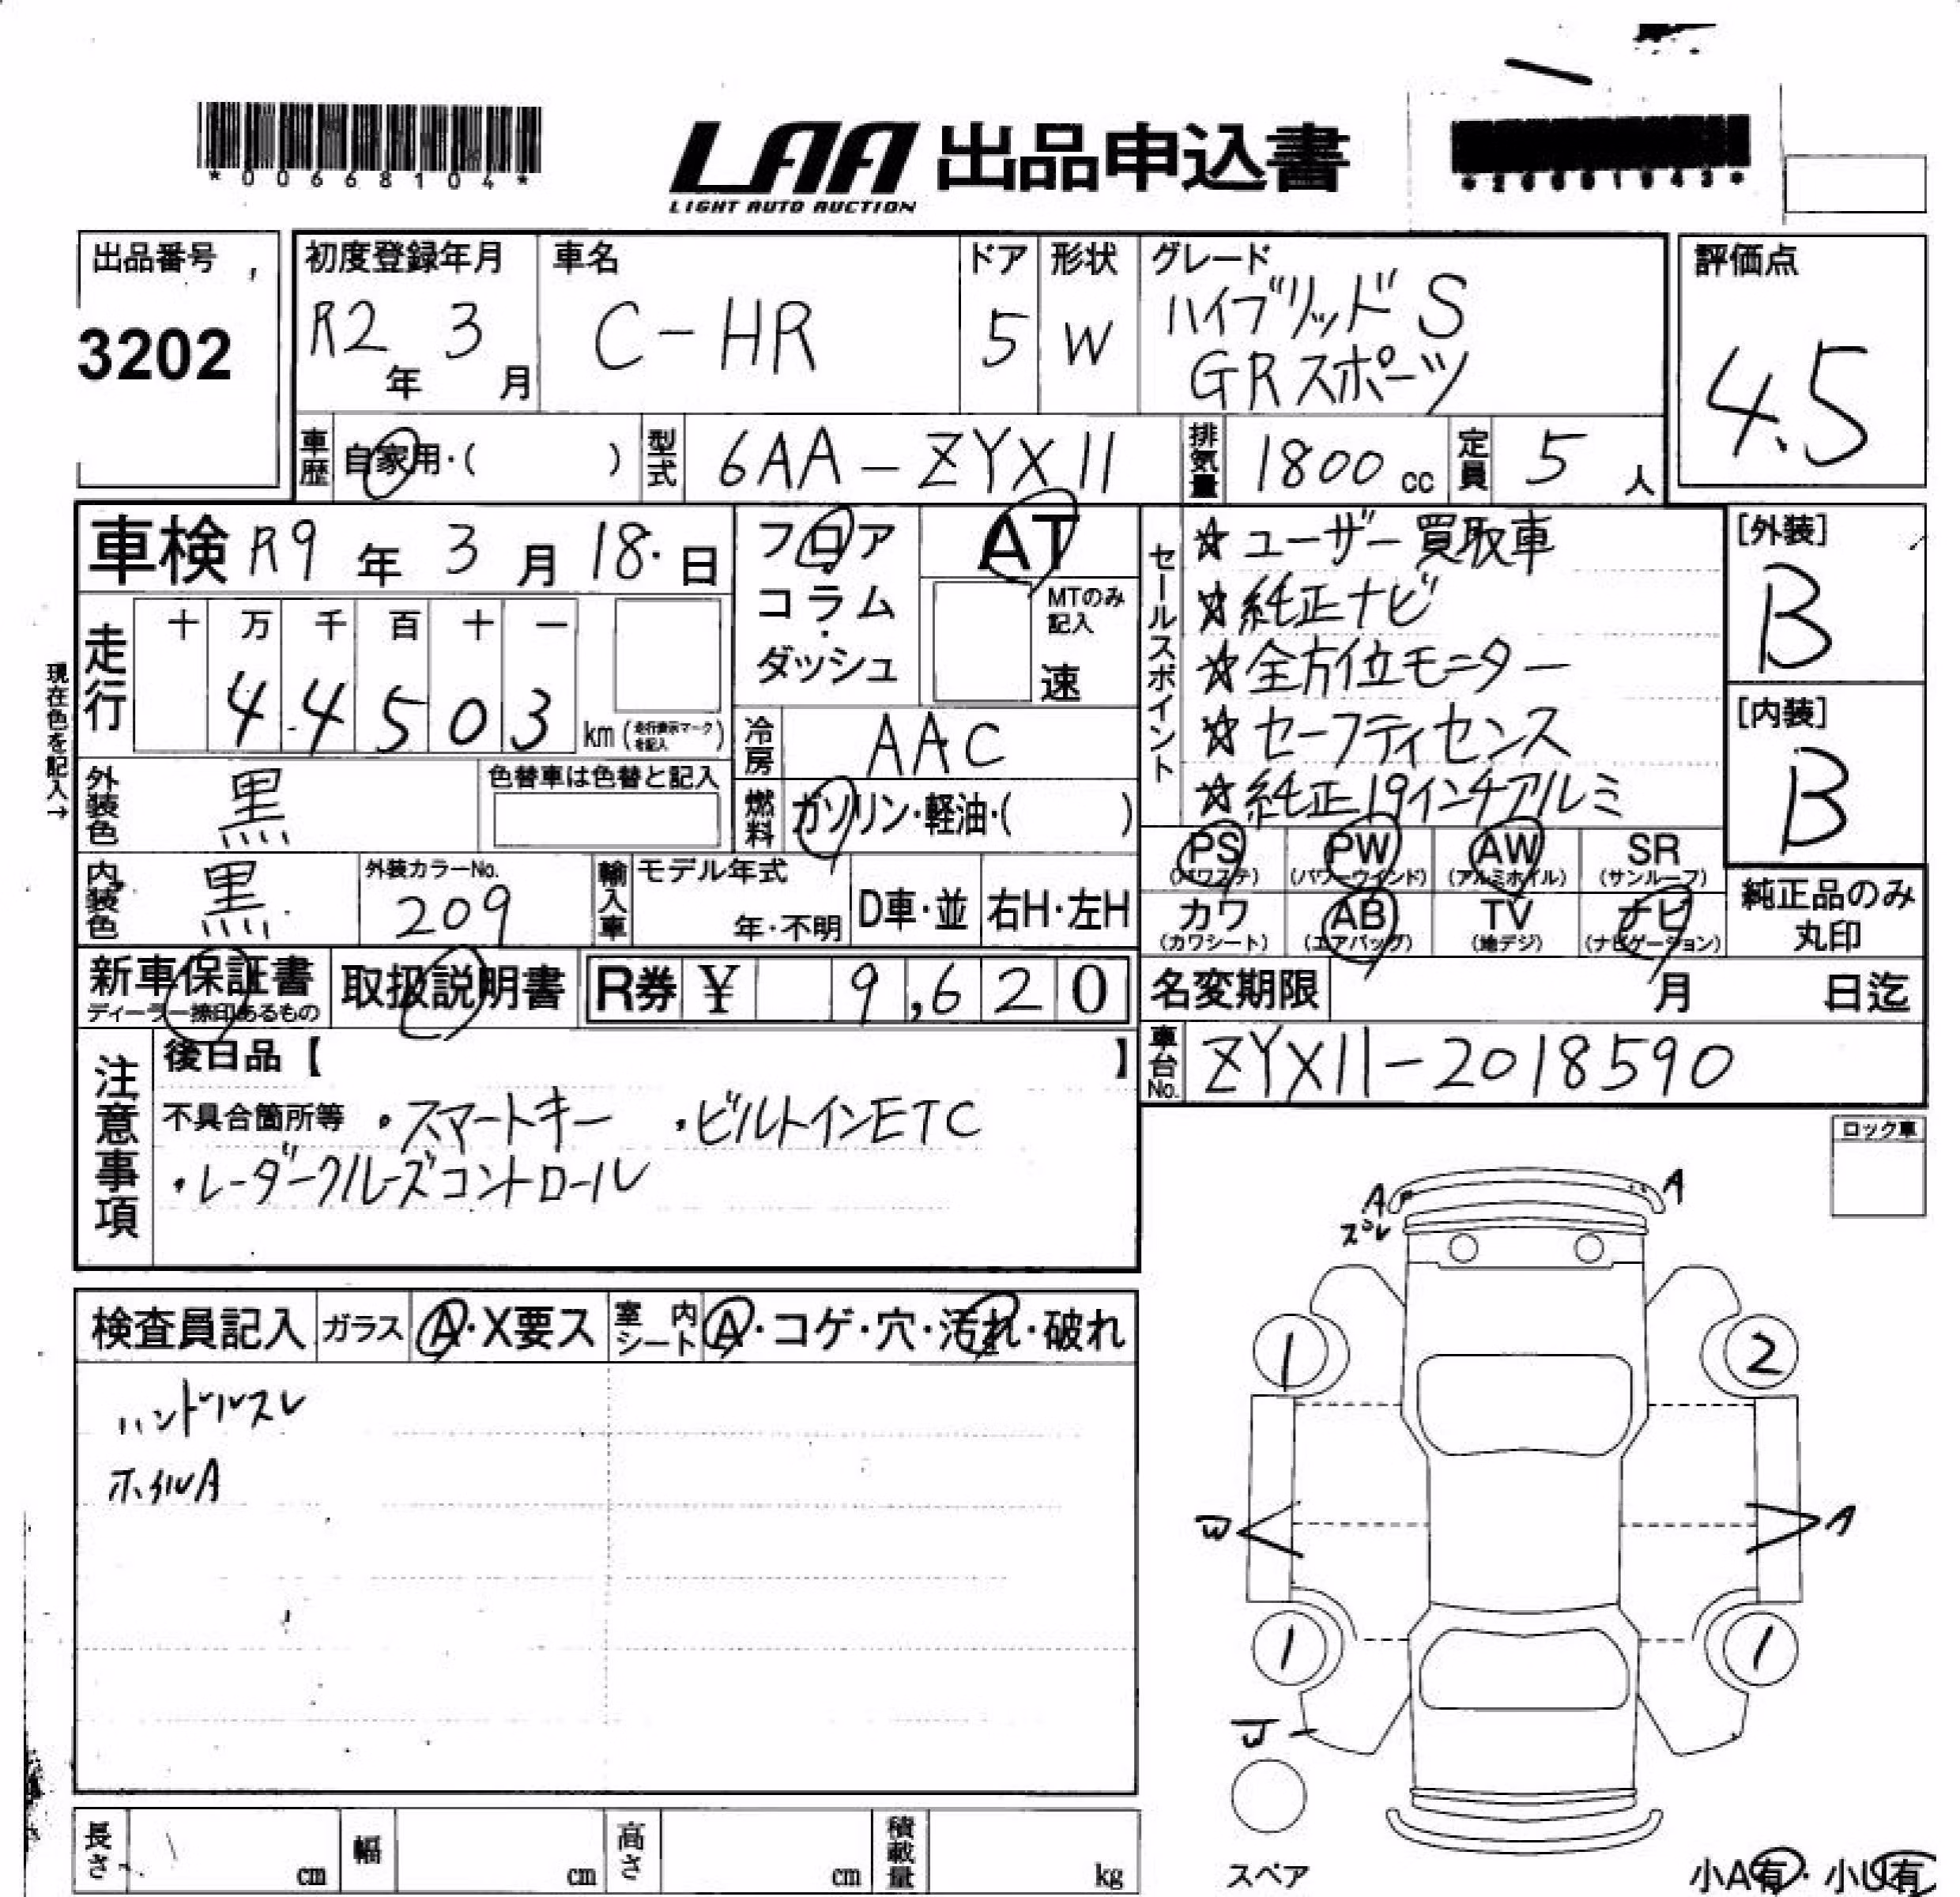 *00668104*
LAA 出品申込書
LIGHT AUTO AUCTION
出品番号
3202
初度登録年月
R2年 3月
車名
C-HR
ドア
5
形状
W
グレード
ハイブリッドS
GRスポーツ
評価点
4.5
車歴 自家用・( )
型式 6AA-ZYX11
排気量 1800cc
定員 5人
車検 R9年 3月 18日
フロア・コラム・ダッシュ
AT
MTのみ記入
速
セールスポイント
☆ユーザー買取車
☆純正ナビ
☆全方位モニター
☆セーフティセンス
☆純正19インチアルミ
[外装]
B
[内装]
B
現在色を記入→
走行
十 万 千 百 十 一
4 4 5 0 3
km (走行表示マークを記入)
冷房 AAC
燃料 ガソリン・軽油・( )
外装色 黒
色替車は色替と記入
内装色 黒
外装カラーNo.
209
輸入車
モデル年式
年・不明
D車・並
右H・左H
PS (パワステ)
PW (パワーウインド)
AW (アルミホイル)
SR (サンルーフ)
カワ (カワシート)
AB (エアバッグ)
TV (地デジ)
ナビ (ナビゲーション)
純正品のみ丸印
新車保証書
ディーラー捺印あるもの
取扱説明書
R券 ¥ 9,620
名変期限 月 日迄
車台No. ZYX11-2018590
注意事項
後日品【 】
不具合箇所等 ・スマートキー ・ビルトインETC
・レーダークルーズコントロール
ロック車
検査員記入
ガラス A・X要ス
室内シート A・コゲ・穴・汚れ・破れ
ハンドルスレ
ホイルA
A
スレ
A
1
2
W
A
1
1
スペア
小A有・小U有
長さ cm
幅 cm
高さ cm
積載量 kg